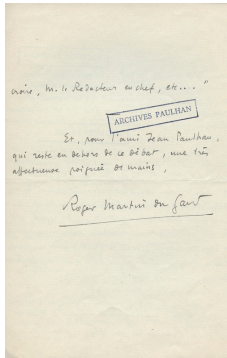 croire, M. le Rédacteur en chef, etc...."
ARCHIVES PAULHAN
Et, pour l'ami Jean Paulhan,
qui reste en dehors de ce débat, une très
affectueuse poignée de mains,
Roger Martin du Gard